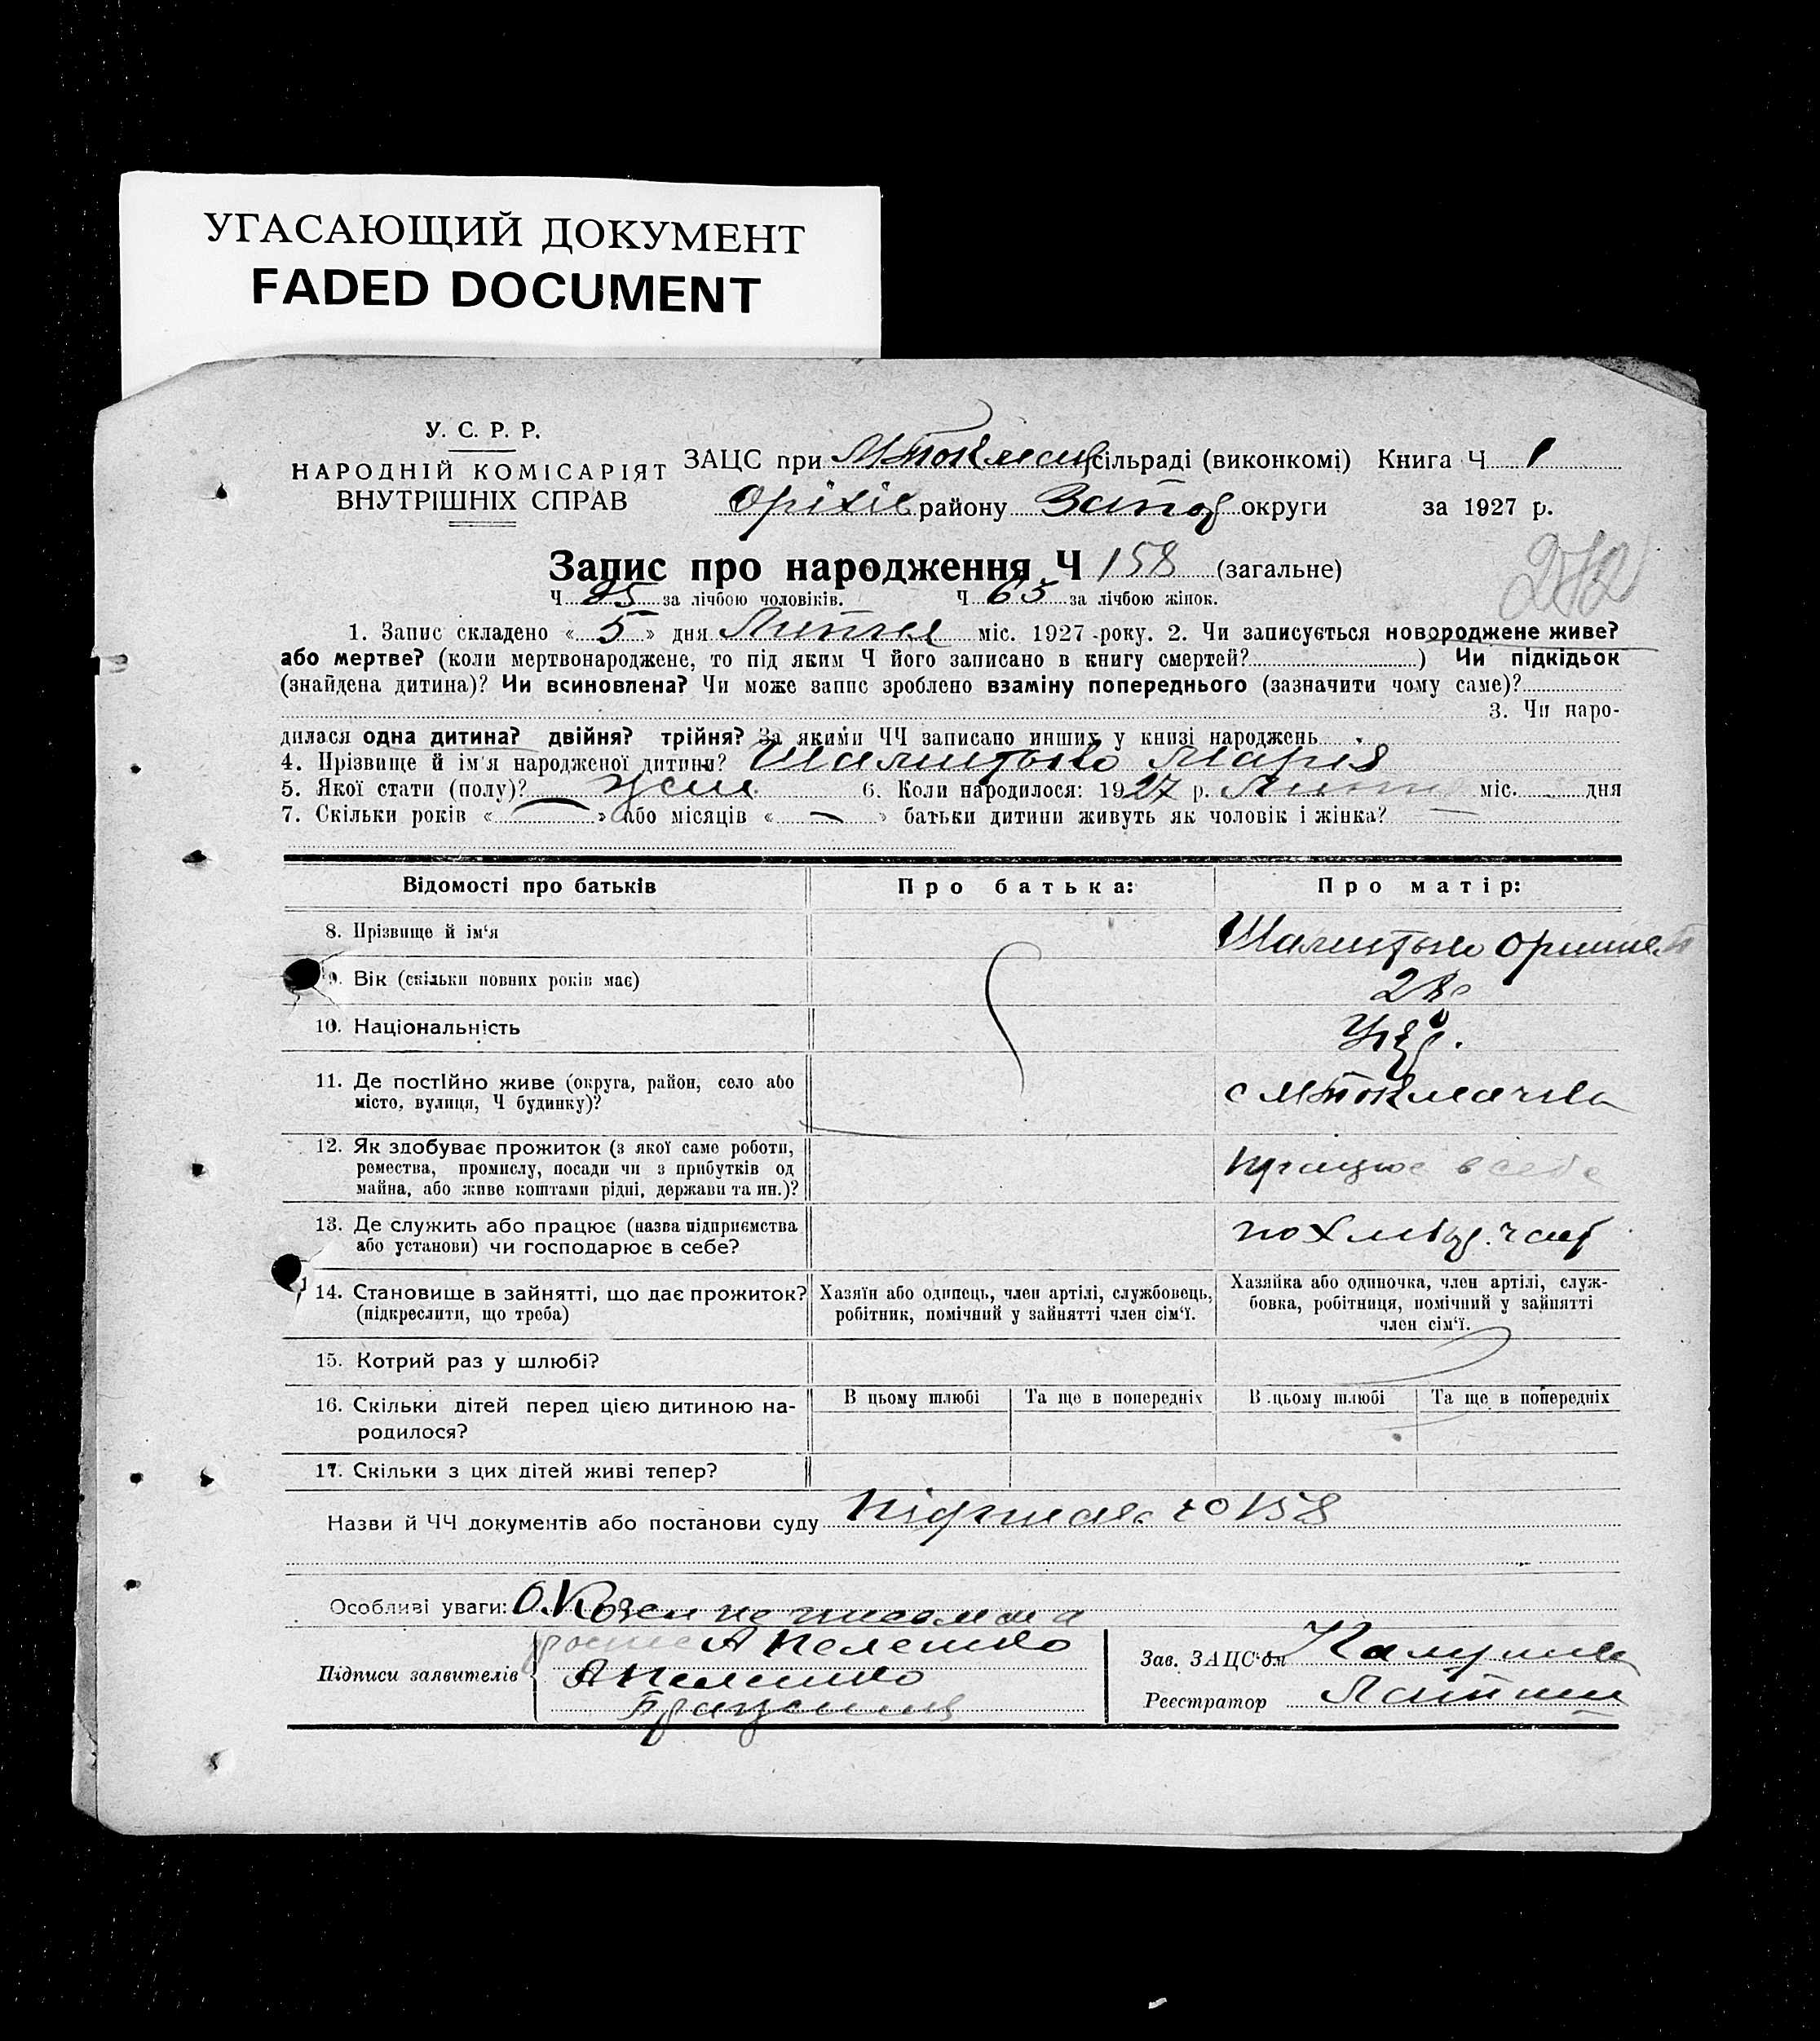 УГАСАЮЩИЙ ДОКУМЕНТ
FADED DOCUMENT
У. С. Р. Р.
НАРОДНІЙ КОМІСАРІЯТ
ВНУТРІШНІХ СПРАВ
ЗАЦС при МТокмач сільраді (виконкомі) Книга Ч 1
Оріхів району Запор округи за 1927 р.
Запис про народження Ч 158 (загальне)
272
Ч 95 за лічбою чоловіків. Ч 63 за лічбою жінок.
1. Запис складено « 5 » дня Липня міс. 1927 року. 2. Чи записується новороджене живе?
або мертве? (коли мертвонароджене, то під яким Ч його записано в книгу смертей?) Чи підкідьок
(знайдена дитина)? Чи всиновлена? Чи може запис зроблено взаміну попереднього (зазначити чому саме)?
3. Чи наро-
дилася одна дитина? двійня? трійня? За якими ЧЧ записано инших у книзі народжень
4. Прізвище й ім'я народженої дитини? Марія
5. Якої стати (полу)? жін. 6. Коли народилося: 1927 р. Липня міс. дня
7. Скільки років « — » або місяців « — » батьки дитини живуть як чоловік і жінка? —
Відомості про батьків Про батька: Про матір:
8. Прізвище й ім'я
9. Вік (скільки повних років має) 28
10. Національність Укр.
11. Де постійно живе (округа, район, село або
місто, вулиця, Ч будинку)? с МТокмачка
12. Як здобуває прожиток (з якої саме роботи,
ремества, промислу, посади чи з прибутків од
майна, або живе коштами рідні, держави та ин.)? працює в себе
13. Де служить або працює (назва підприємства
або установи) чи господарює в себе?
14. Становище в зайнятті, що дає прожиток?
(підкреслити, що треба)
Хазяїн або одинець, член артілі, службовець,
робітник, помічний у зайнятті член сім'ї.
Хазяйка або одиночка, член артілі, служ-
бовка, робітниця, помічний у зайнятті
член сім'ї.
15. Котрий раз у шлюбі?
16. Скільки дітей перед цією дитиною на-
родилося?
В цьому шлюбі Та ще в попередніх В цьому шлюбі Та ще в попередніх
17. Скільки з цих дітей живі тепер?
Назви й ЧЧ документів або постанови суду 158
Особливі уваги:
Підписи заявителів
Зав. ЗАЦС'ом
Реєстратор